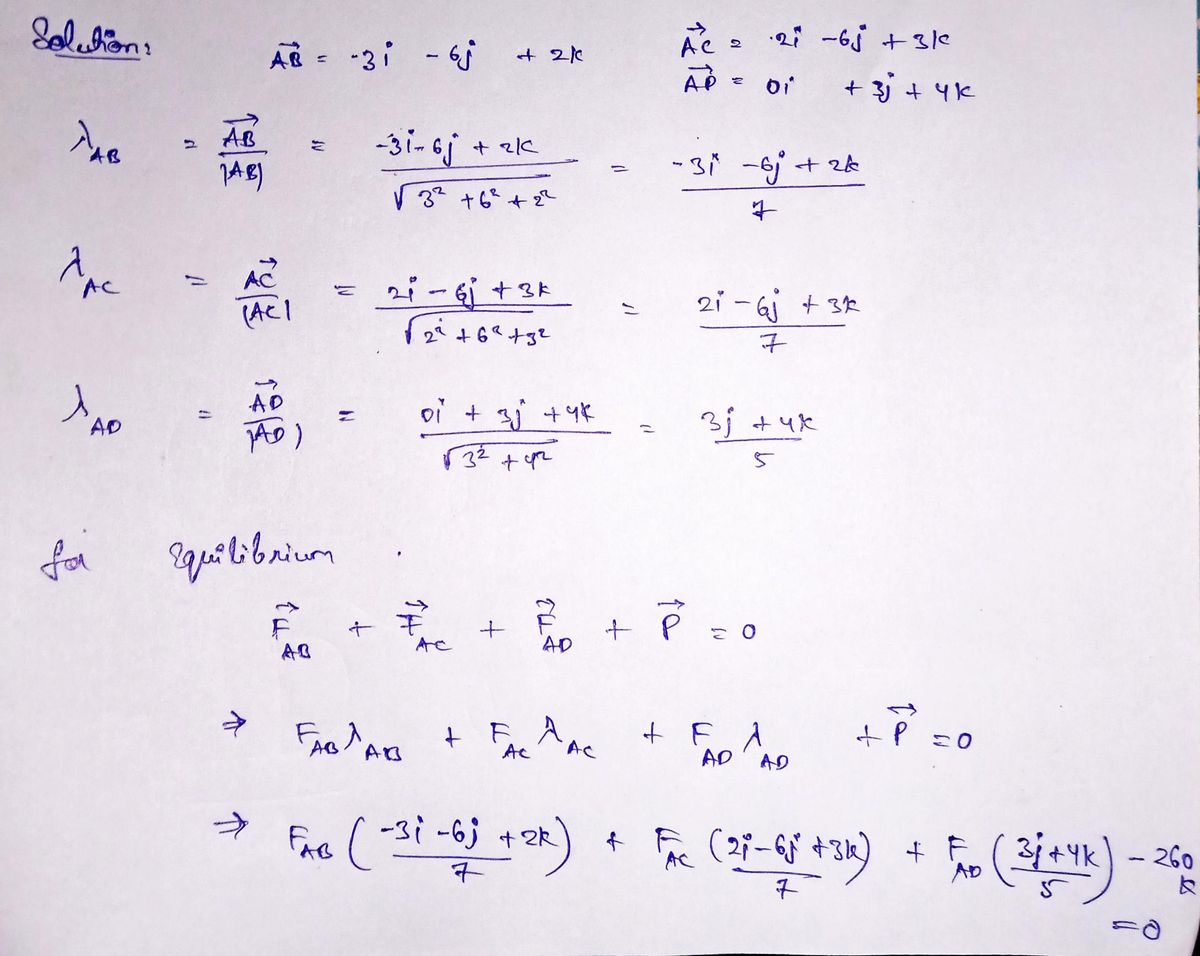 Solution:
AB→ = -3i - 6j + 2k
AC→ = 2i - 6j + 3k
AD→ = 0i + 3j + 4k
λAB = AB→ / |AB| = -3i - 6j + 2k / √3² + 6² + 2² = -3i - 6j + 2k / 7
λAC = AC→ / |AC| = 2i - 6j + 3k / √2² + 6² + 3² = 2i - 6j + 3k / 7
λAD = AD→ / |AD| = 0i + 3j + 4k / √3² + 4² = 3j + 4k / 5
for Equilibrium
F→AB + F→AC + F→AD + P→ = 0
⇒ FAB λAB + FAC λAC + FAD λAD + P→ = 0
⇒ FAB (-3i - 6j + 2k / 7) + FAC (2i - 6j + 3k / 7) + FAD (3j + 4k / 5) - 260 k
= 0